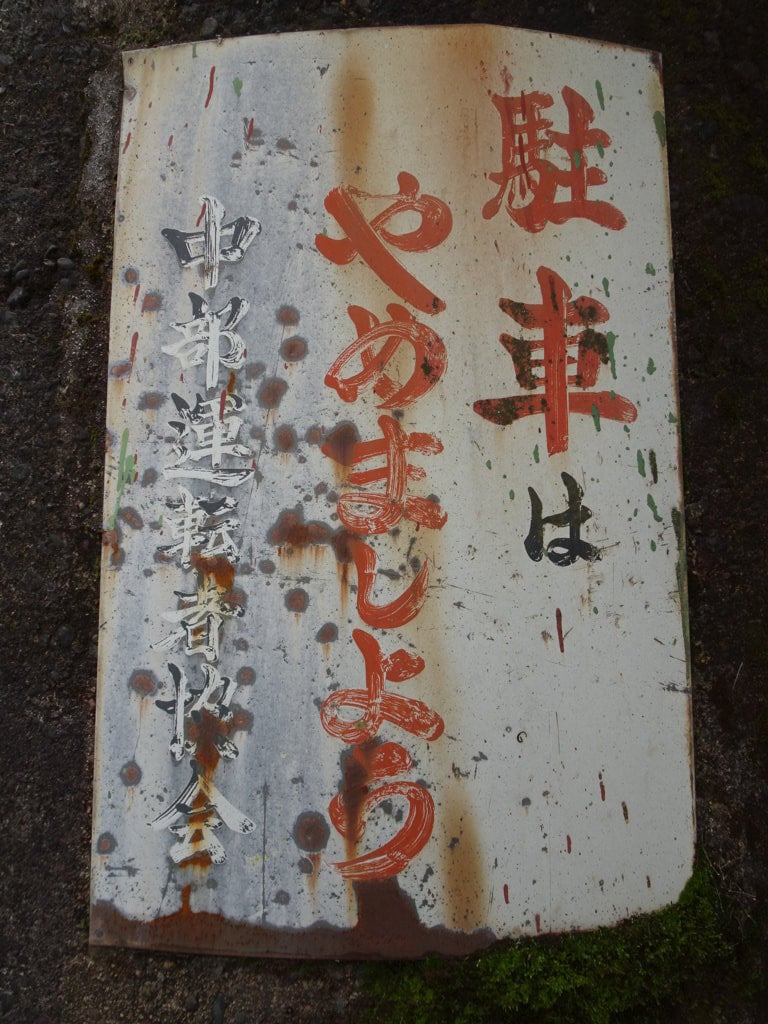 駐車は
やめましよう
中部運転者協会